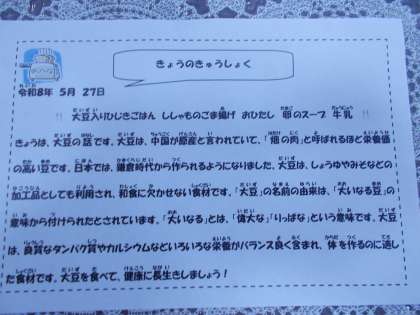 きょうのきゅうしょく
令和8年 5月 27日
!! 大豆入りひじきごはん ししゃものごま揚げ おひたし 卵のスープ 牛乳 !!
きょうは、大豆の話です。大豆は、中国が原産と言われていて、「畑の肉」と呼ばれるほど栄養価
の高い豆です。日本では、鎌倉時代から作られるようになりました。大豆は、しょうゆやみそなどの
加工品としても利用され、和食に欠かせない食材です。「大豆」の名前の由来は、「大いなる豆」の
意味から付けられたとされています。「大いなる」とは、「偉大な」「りっぱな」という意味です。大豆
は、良質なタンパク質やカルシウムなどいろいろな栄養がバランス良く含まれ、体を作るのに適し
た食材です。大豆を食べて、健康に長生きしましょう！